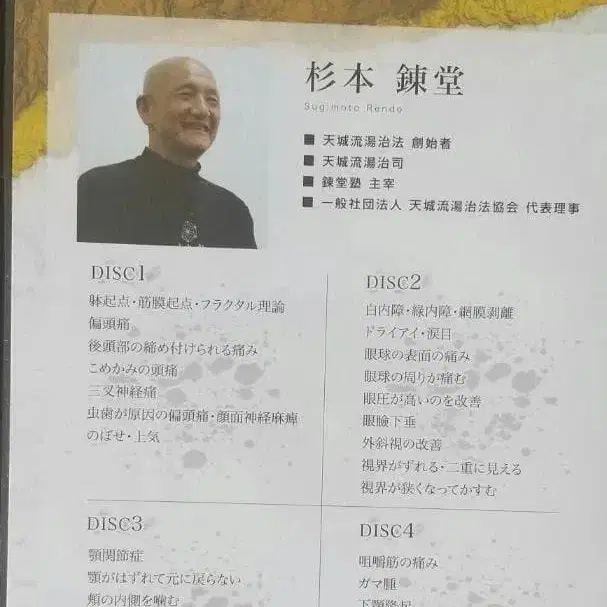 杉本 錬堂
Sugimoto Rendo
■ 天城流湯治法 創始者
■ 天城流湯治司
■ 錬堂塾 主宰
■ 一般社団法人 天城流湯治法協会 代表理事
DISC1
躰起点・筋膜起点・フラクタル理論
偏頭痛
後頭部の締め付けられる痛み
こめかみの頭痛
三叉神経痛
虫歯が原因の偏頭痛・顔面神経麻痺
のぼせ・上気
DISC2
白内障・緑内障・網膜剥離
ドライアイ・涙目
眼球の表面の痛み
眼球の周りが痛む
眼圧が高いのを改善
眼瞼下垂
外斜視の改善
視界がずれる・二重に見える
視界が狭くなってかすむ
DISC3
顎関節症
顎がはずれて元に戻らない
頬の内側を噛む
DISC4
咀嚼筋の痛み
ガマ腫
下顎隆起